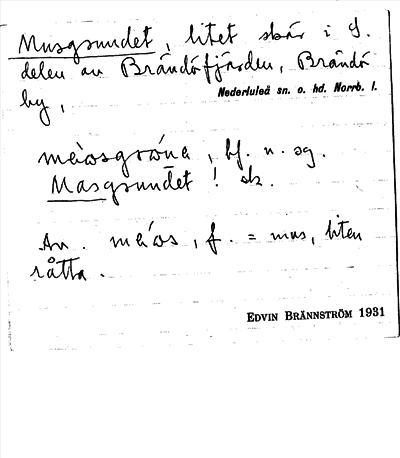 Musgrundet, litet skär i S.
delen av Brändöfjärden, Brändö
by,
Nederluleå sn. o. hd. Norrb. l.
, bf. n. sg.
Masgrundet! sk.
An. , f. = mus, liten
råtta.
EDVIN BRÄNNSTRÖM 1931